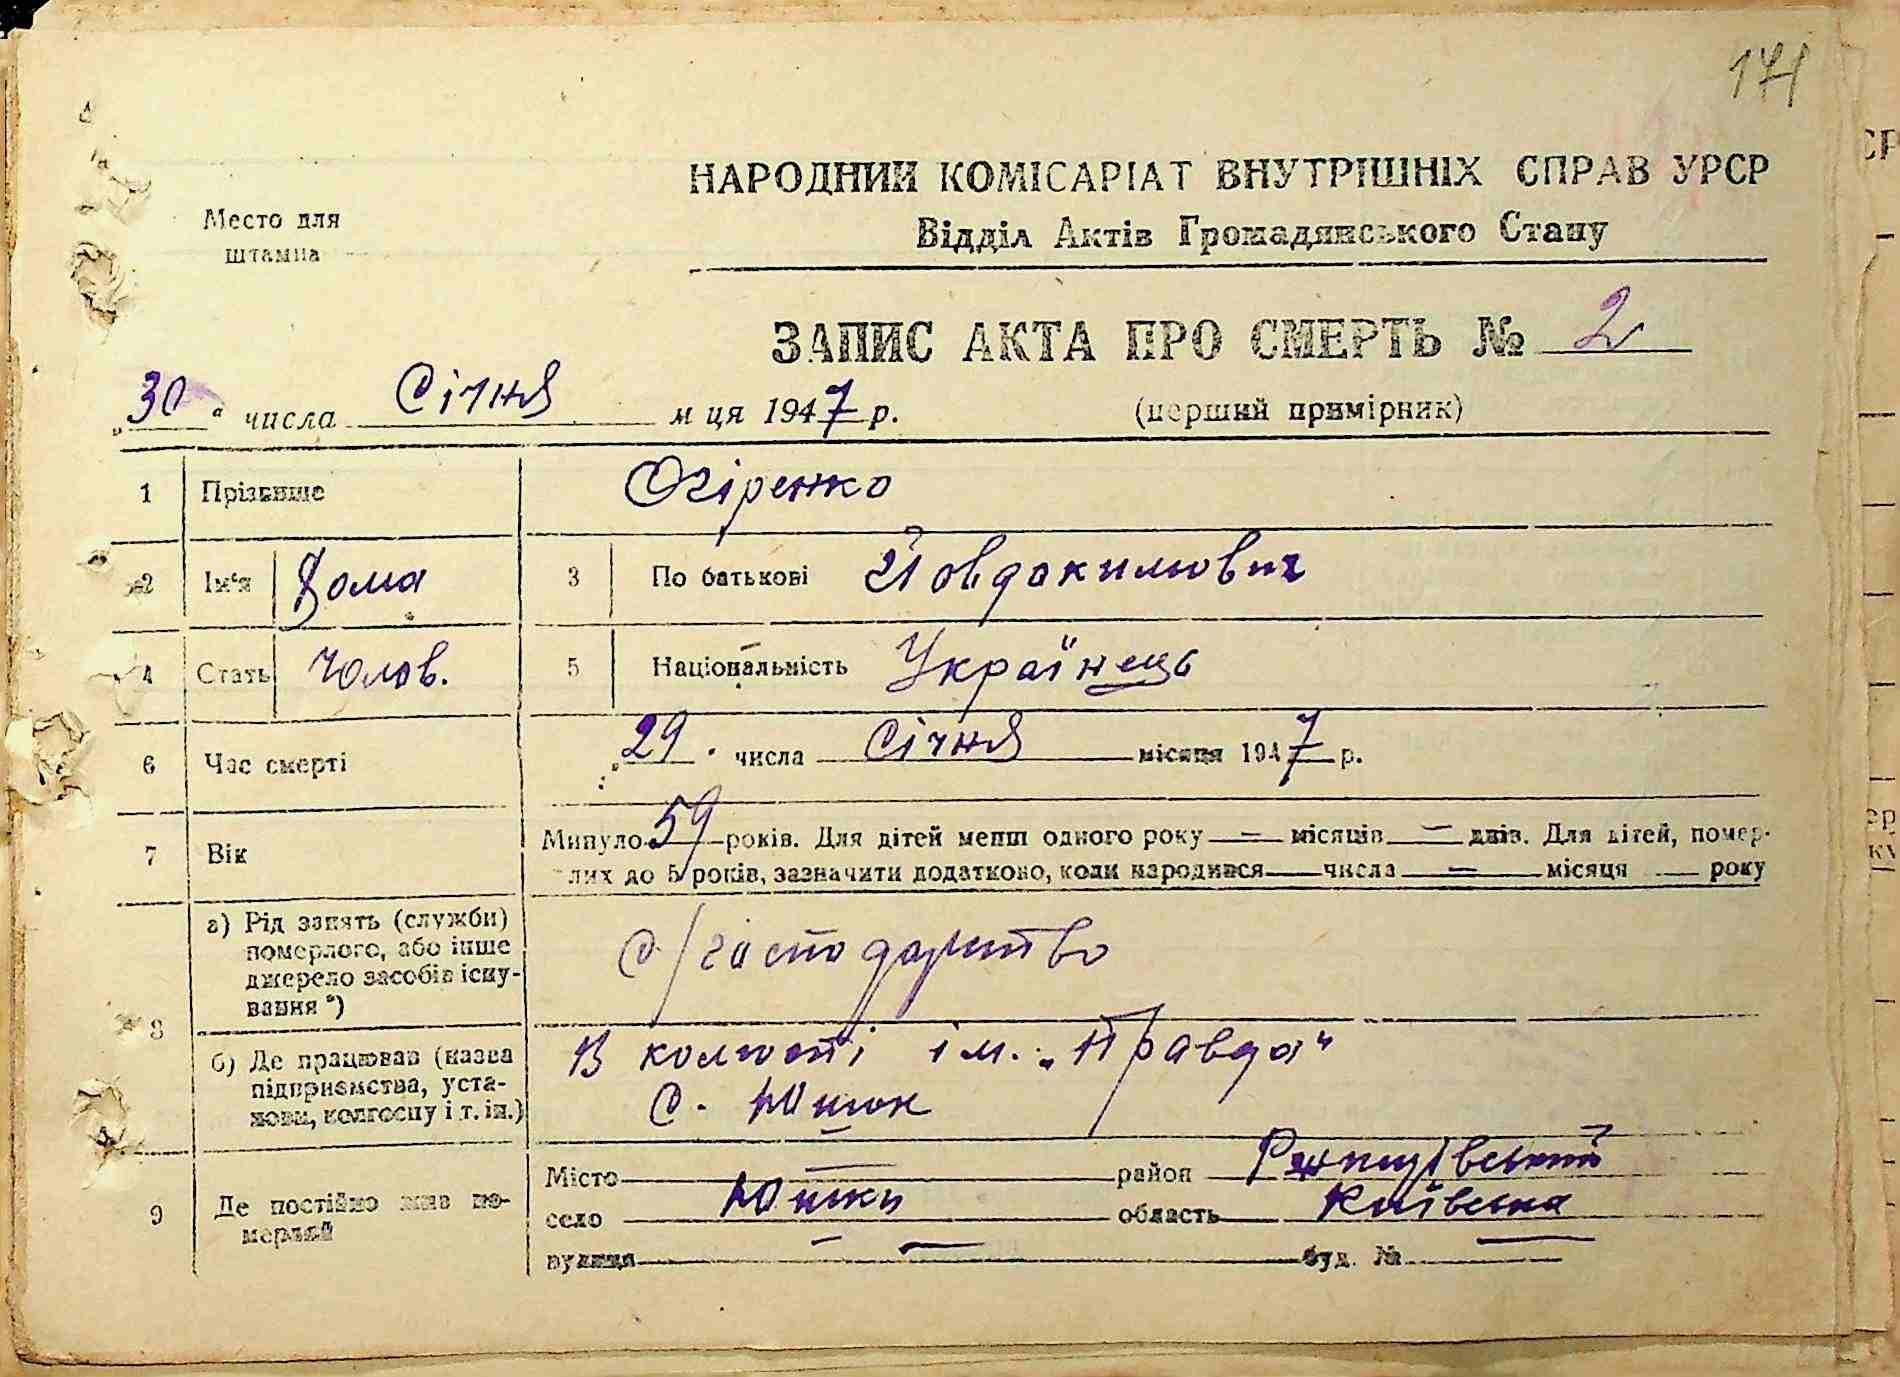 171
НАРОДНИЙ КОМІСАРІАТ ВНУТРІШНІХ СПРАВ УРСР
Відділ Актів Громадянського Стану
Место для
штампа
ЗАПИС АКТА ПРО СМЕРТЬ № 2
„30“ числа Січня м ця 1947 р. (перший примірник)
1 Прізвище Огіренко
2 Ім'я Хома 3 По батькові Йовдакимович
4 Стать Чолов. 5 Національність Українець
6 Час смерті „29. числа Січня місяця 1947 р.
7 Вік Минуло 59 років. Для дітей менш одного року — місяців — днів. Для дітей, помер-
лих до 5 років, зазначити додатково, коли народився — числа — місяця — року
8 а) Рід занять (служби)
померлого, або інше
джерело засобів існу-
вання *)
С/господарство
б) Де працював (назва
підприємства, уста-
нови, колгоспу і т. ін.)
В колгоспі ім. „Правда“
с. Юшок
9 Де постійно жив по-
мерлий
Місто — район Ржищівський
село Юшки область Київська
вулиця — буд. № —